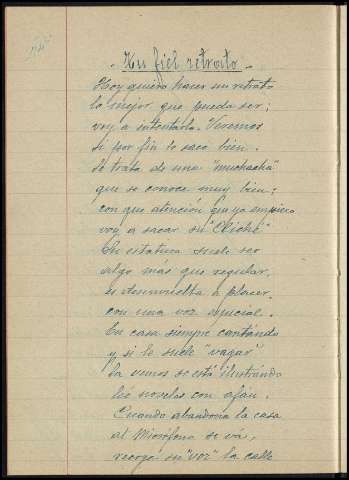 Un fiel retrato
Hoy quiero hacer un retrato
lo mejor que pueda ser;
voy a intentarlo. Veremos
si por fin lo saco bien.
Se trata de una "muchacha"
que se conoce muy bien;
con que atención que ya empiezo
voy a sacar su "Cliché"
Su estatura suele ser
algo más que regular,
es desenvuelta a placer,
con una voz especial.
En casa siempre cantando
y si le suele "vagar"
La vemos se está ilustrando
lee novelas con afán.
Cuando abandona la casa
al Micrófono se va,
recoge su "voz" la calle